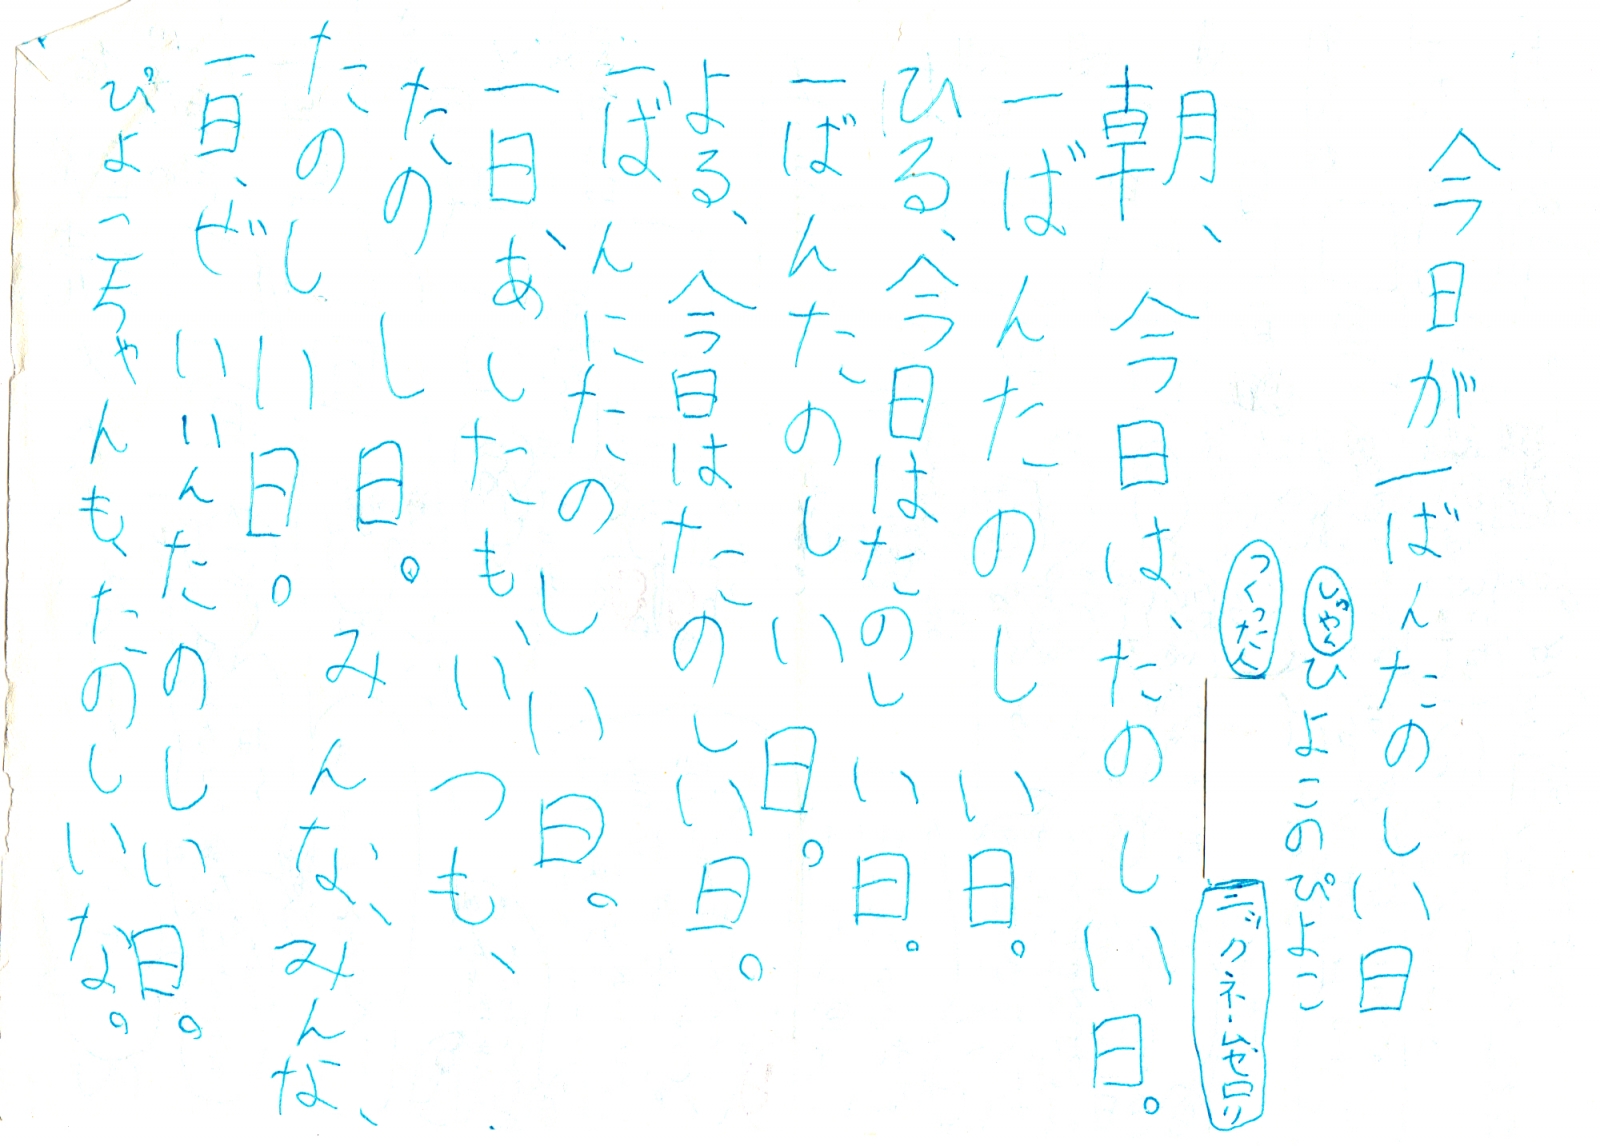 今日が一ばんたのしい日
しゃくひよこのぴよこ
つくった人
ニックネームゼロリ
朝、今日は、たのしい日。
一ばんたのしい日。
ひる、今日はたのしい日。
一ばんたのしい日。
よる、今日はたのしい日。
一ばんにたのしい日。
一日、あしたも、いつも、
たのしい日。みんな、みんな、
たのしい日。
一日、ぜいいんたのしい日。
ぴよこちゃんも、たのしいな。